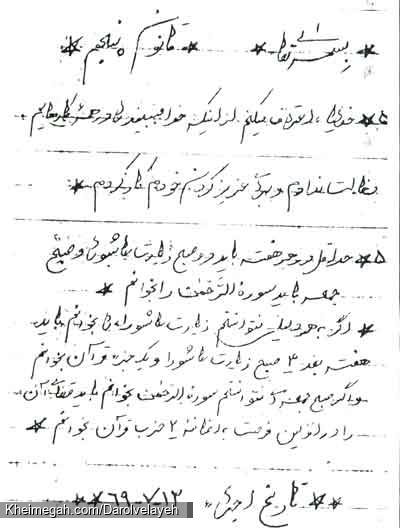 * بسمه تعالی * * قانون پنجم *
* خدایا، اعتراف میکنم از اینکه خدا میبیند مرا در همه کارهایم
خجالت نداوم و برای عزیز کردن خودم کار کردم *
* حداقل در هر هفته باید دو صبح زیارت عاشورا و صبح
جمعه باید سوره الرحمن را بخوانم *
* اگر به هر دلیلی نتوانستم زیارت عاشورا را بخوانم باید
هفته بعد ۴ صبح زیارت عاشورا و یک حزب قرآن بخوانم
و اگر صبح جمعه ای نتوانستم سوره الرحمن بخوانم باید قضای آن
را در اولین فرصت به اضافه ۲ حزب قرآن بخوانم *
** تاریخ اجرای ۶۹-۷-۱۳ **
Kheimegah.com/Darolvelayeh